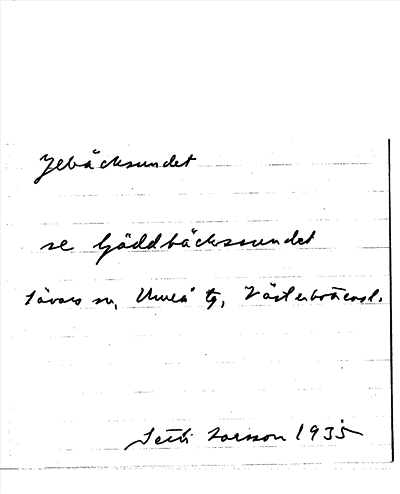 Jebäcksundet
se Gäddbäckssundet
Sävars sn, Umeå tg, Västerbottensl.
Seth Larsson 1935